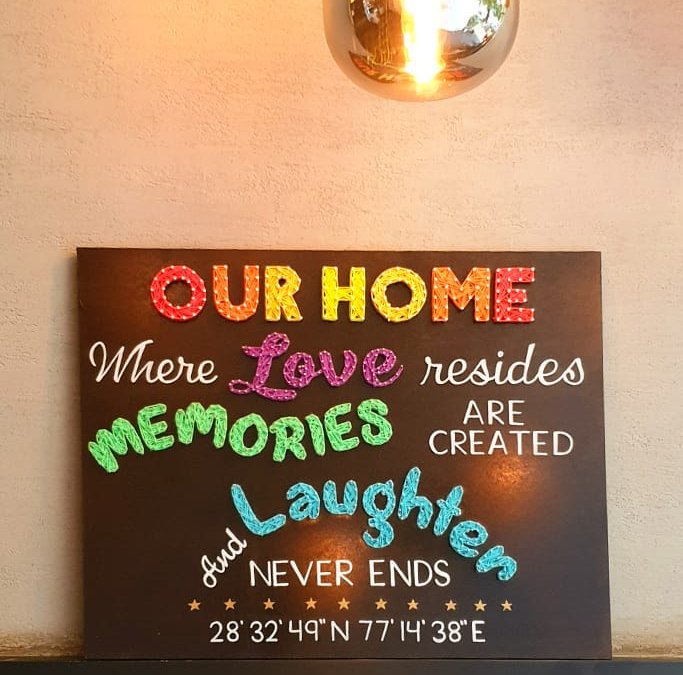 OUR HOME
Where Love resides
MEMORIES ARE CREATED
And Laughter
NEVER ENDS
28' 32' 49" N 77' 14' 38" E